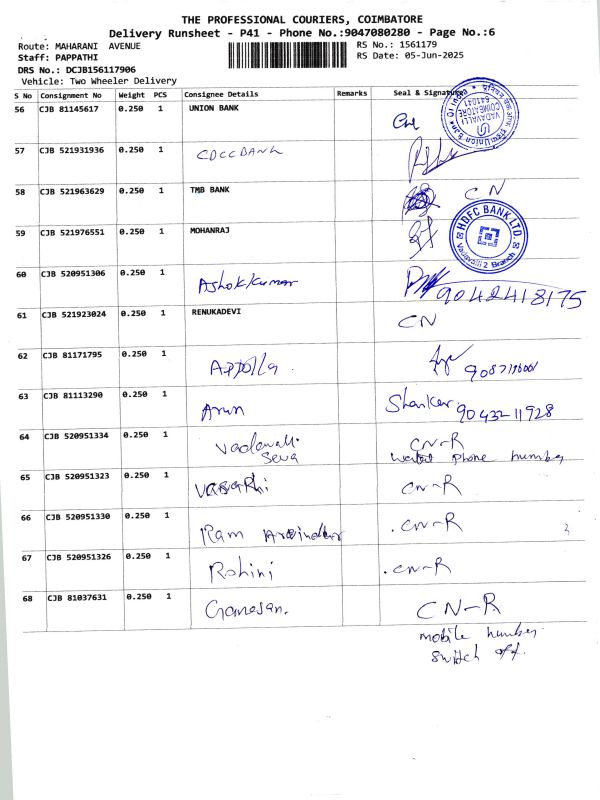 THE PROFESSIONAL COURIERS, COIMBATORE
Delivery Runsheet - P41 - Phone No.:9047080280 - Page No.:6
Route: MAHARANI AVENUE
RS No.: 1561179
Staff: PAPPATHI
RS Date: 05-Jun-2025
DRS No.: DCJB156117906
Vehicle: Two Wheeler Delivery
S No Consignment No Weight PCS Consignee Details Remarks Seal & Signature
56 CJB 81145617 0.250 1 UNION BANK
VADAVALLI
COIMBATORE
641041
57 CJB 521931936 0.250 1 CDCCBANK
58 CJB 521963629 0.250 1 TMB BANK CN
59 CJB 521976551 0.250 1 MOHANRAJ
HDFC BANK LTD.
Vadavalli 2 Branch
60 CJB 520951306 0.250 1 Ashokkumar 9042418175
61 CJB 521923024 0.250 1 RENUKADEVI CN
62 CJB 81171795 0.250 1
63 CJB 81113290 0.250 1 Arun Shankar 9043211928
64 CJB 520951334 0.250 1 Vadavalli Seva CN-R
phone number
65 CJB 520951323 0.250 1 CN-R
66 CJB 520951330 0.250 1 Ram CN-R
67 CJB 520951326 0.250 1 Rohini CN-R
68 CJB 81037631 0.250 1 Ganesan. CN-R
mobile number
switch off.